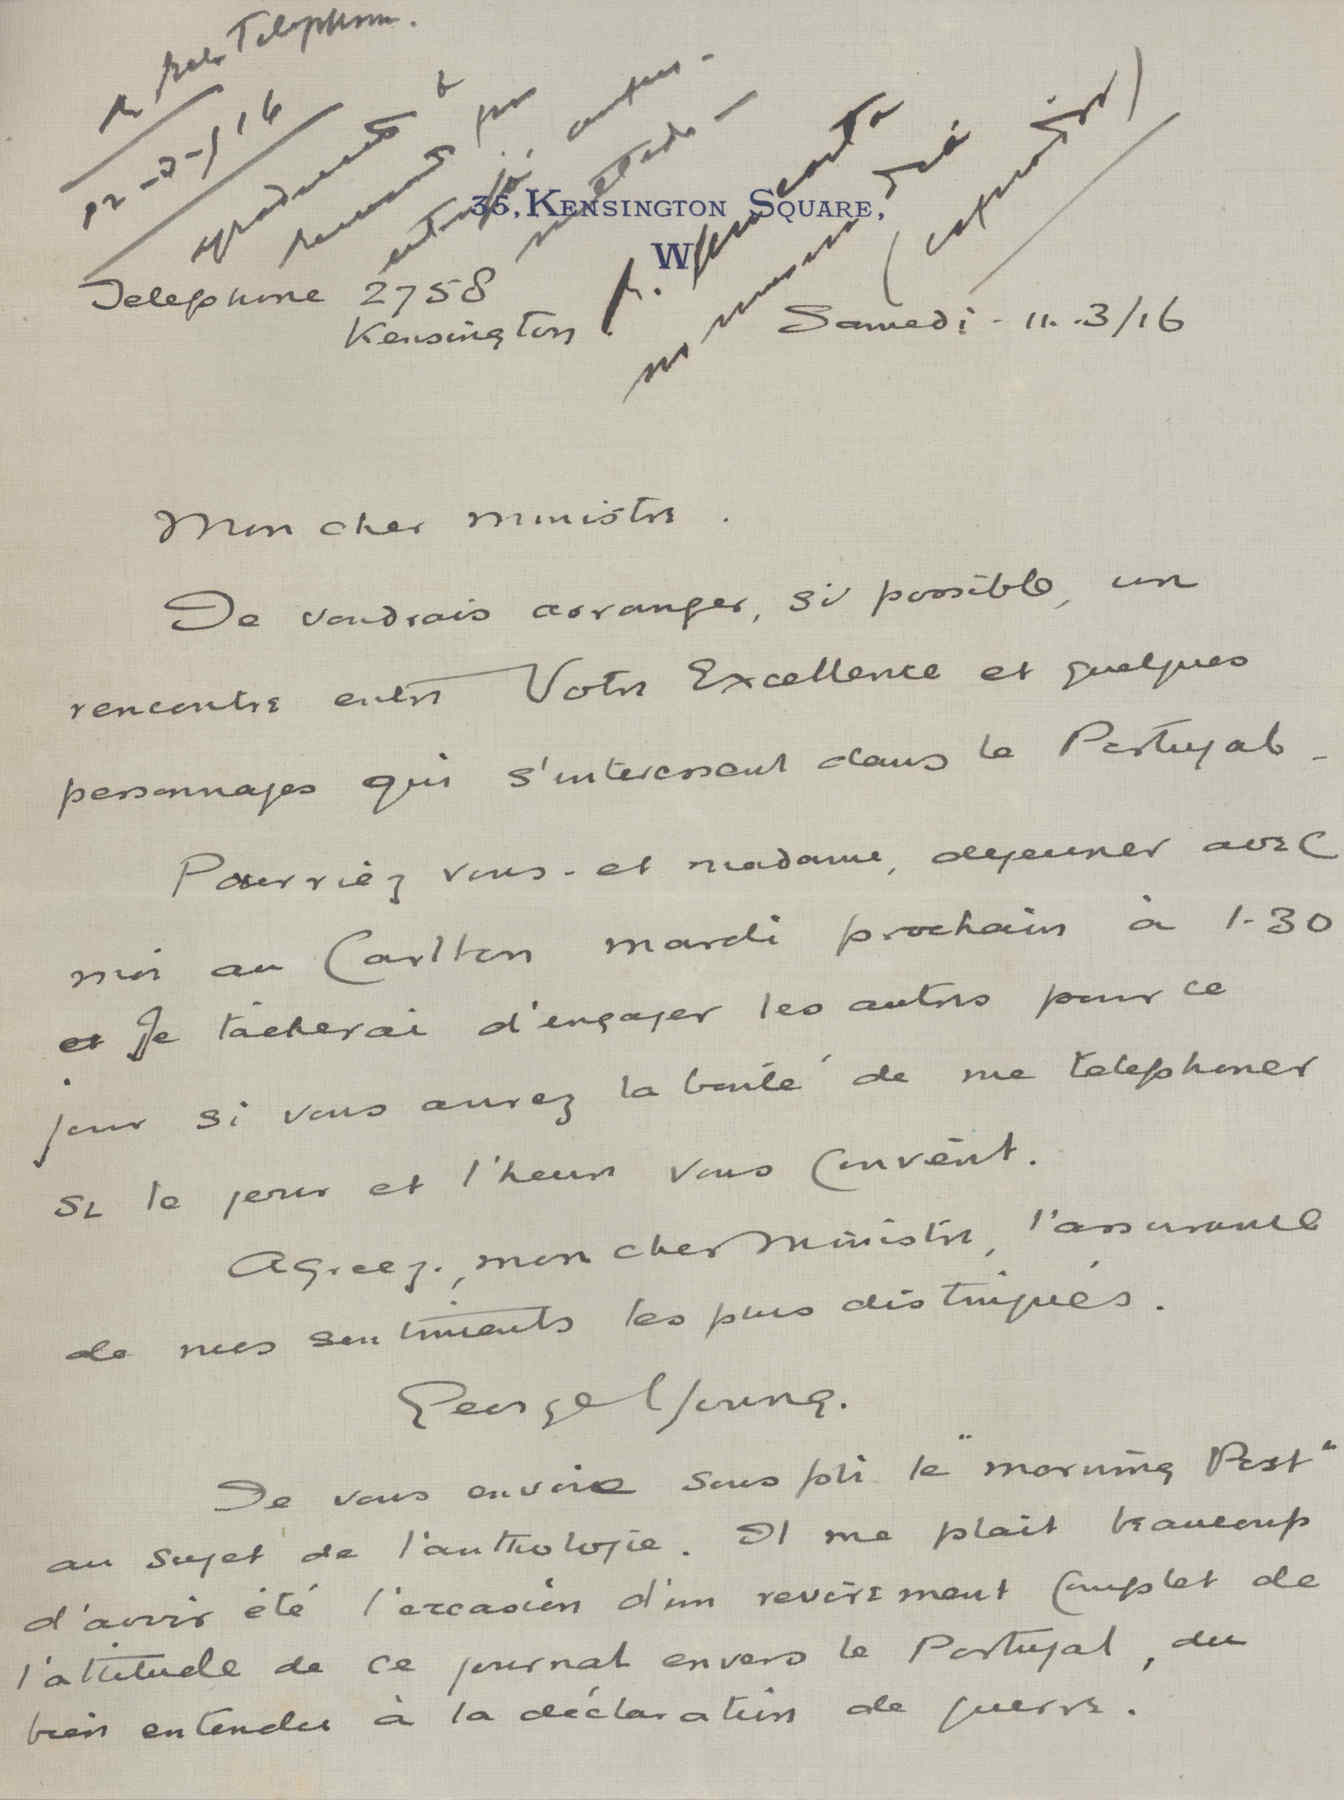 Telephone.
12-3-916
36, KENSINGTON SQUARE,
W
Telephone 2758
Kensington.
Samedi - 11.-3/16
Mon cher Ministre.
Je voudrais arranger, si possible, un
rencontre entre Votre Excellence et quelques
personnages qui s'interessent dans le Portugal -
Pourriez vous - et madame, dejeuner avec
moi au Carlton mardi prochain à 1-30
et Je tâcherai d'engager les autres pour ce
jour si vous aurez la bonté de me telephoner
si le jour et l'heure vous convent.
Agreez, mon cher Ministre, l'assurance
de mes sentiments les plus distingués.
George Young.
Je vous envoie sous pli le "Morning Post"
au sujet de l'anthologie. Il me plait beaucoup
d'avoir été l'occasion d'un reverement complet de
l'attitude de ce journal envers le Portugal, du
bien entendu à la déclaration de guerre.